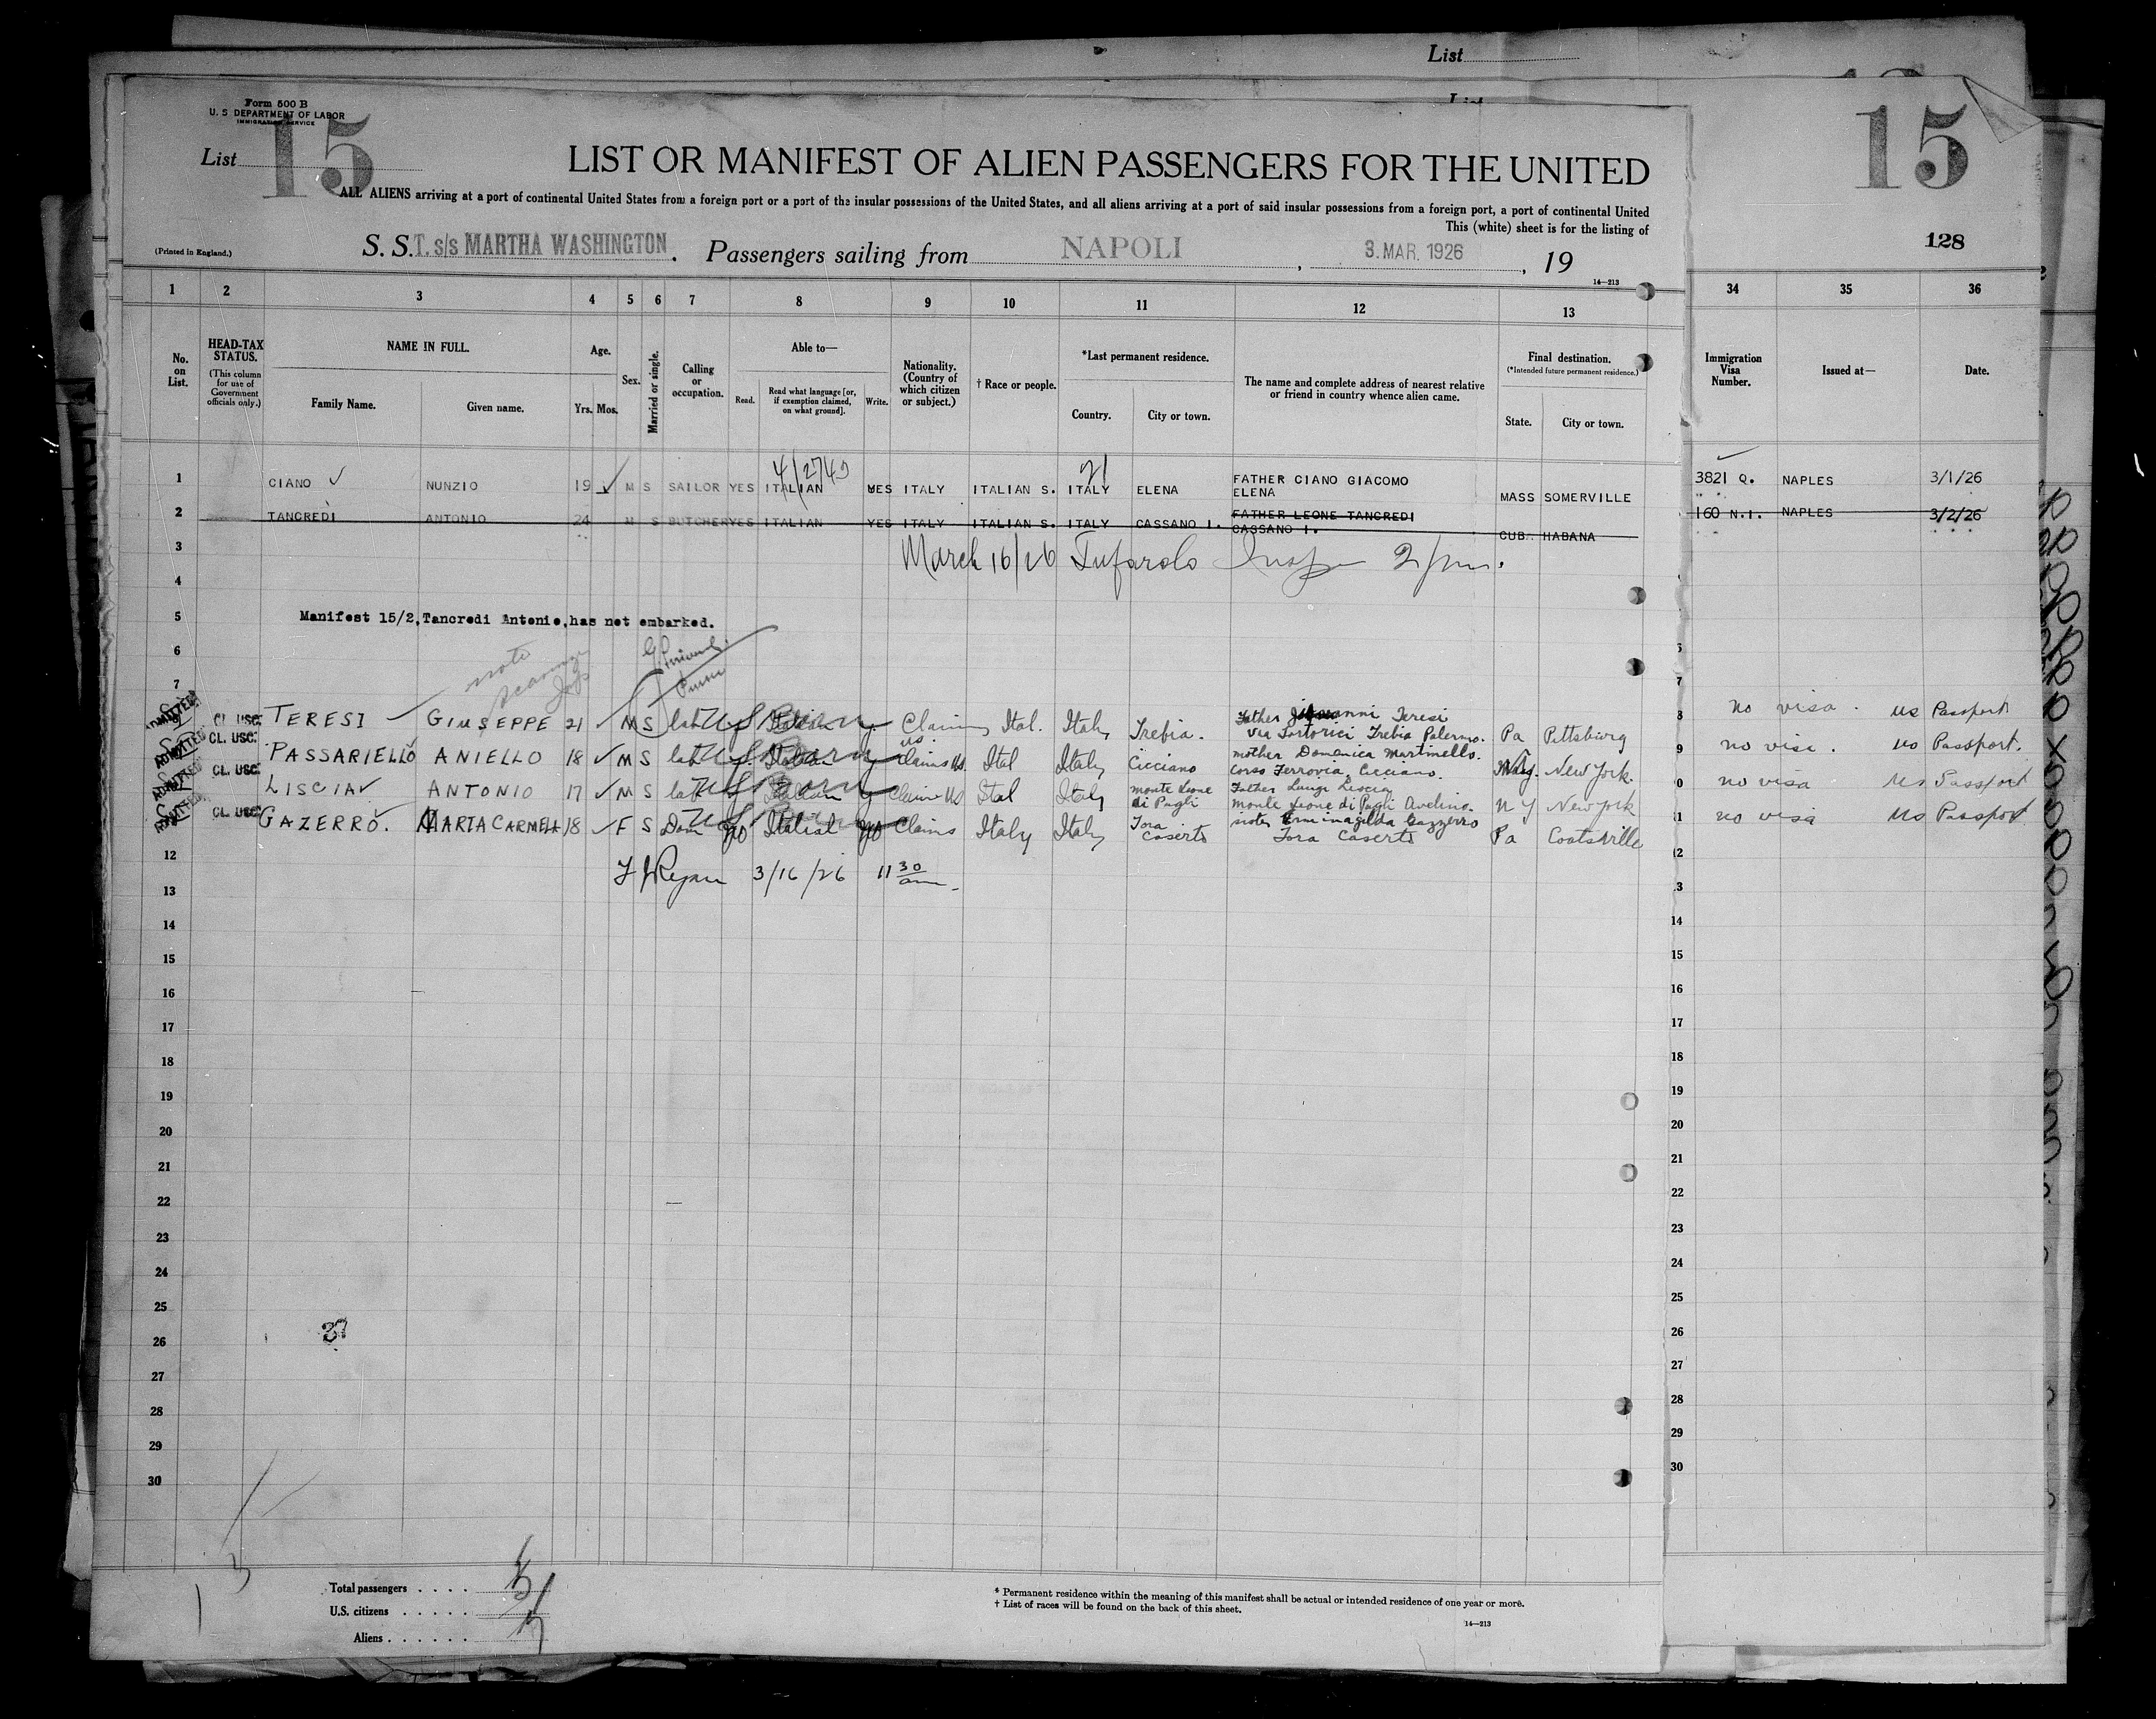 List
Form 500 B
U. S. DEPARTMENT OF LABOR
IMMIGRATION SERVICE
List 15
15
LIST OR MANIFEST OF ALIEN PASSENGERS FOR THE UNITED
ALL ALIENS arriving at a port of continental United States from a foreign port or a port of the insular possessions of the United States, and all aliens arriving at a port of said insular possessions from a foreign port, a port of continental United
This (white) sheet is for the listing of
128
(Printed in England.)
S. S. T. s/s MARTHA WASHINGTON. Passengers sailing from NAPOLI, 3. MAR. 1926, 19
14—213
1 2 3 4 5 6 7 8 9 10 11 12 13 34 35 36
No. on List.
HEAD-TAX STATUS. (This column for use of Government officials only.)
NAME IN FULL.
Family Name. Given name.
Age.
Yrs. Mos.
Sex.
Married or single.
Calling or occupation.
Able to—
Read. Read what language [or, if exemption claimed, on what ground]. Write.
Nationality. (Country of which citizen or subject.)
† Race or people.
*Last permanent residence.
Country. City or town.
The name and complete address of nearest relative or friend in country whence alien came.
Final destination. (*Intended future permanent residence.)
State. City or town.
Immigration Visa Number.
Issued at—
Date.
1 CIANO NUNZIO 19 M S SAILOR YES ITALIAN YES ITALY ITALIAN S. ITALY ELENA FATHER CIANO GIACOMO ELENA MASS SOMERVILLE 3821 Q. NAPLES 3/1/26
2 TANCREDI ANTONIO 24 M S BUTCHER YES ITALIAN YES ITALY ITALIAN S. ITALY CASSANO I. FATHER LEONE TANCREDI CASSANO I. CUB. HABANA 160 N.I. NAPLES 3/2/26
3 March 16/26 Tufarolo Insp 2 pm.
4
5 Manifest 15/2, Tancredi Antonio, has not embarked.
6
7
ADMITTED CL. USC. TERESI GIUSEPPE 21 M S lab US Born Italian y Claims US Ital. Italy Trebia. Father Giovanni Teresi Via Tortorici Trebia Palermo. Pa Pittsburg no visa. US Passport
ADMITTED CL. USC. PASSARIELLO ANIELLO 18 M S lab US Born Italian y Claims US Ital Italy Cicciano mother Domenica Martinello. Corso Ferrovia, Cicciano. New York no visa. US Passport.
ADMITTED CL. USC. LISCIA ANTONIO 17 M S lab US Born Italian y Claims US Ital Italy Monte Leone di Pugli Father Luigi Liscia Monte Leone di Pugli Avelino. N Y New York no visa US Passport
ADMITTED CL. USC. GAZERRO. MARIA CARMELA 18 F S Dom US Born Claims Italy Italy Tora Caserta sister Erminagilda Gazzerro Tora Caserta Pa Coatsville no visa US Passport
12 F J Ryan 3/16/26 11 30 am.
13
14
15
16
17
18
19
20
21
22
23
24
25
26
27
28
29
30
Total passengers
U.S. citizens
Aliens
* Permanent residence within the meaning of this manifest shall be actual or intended residence of one year or more.
† List of races will be found on the back of this sheet.
14—213